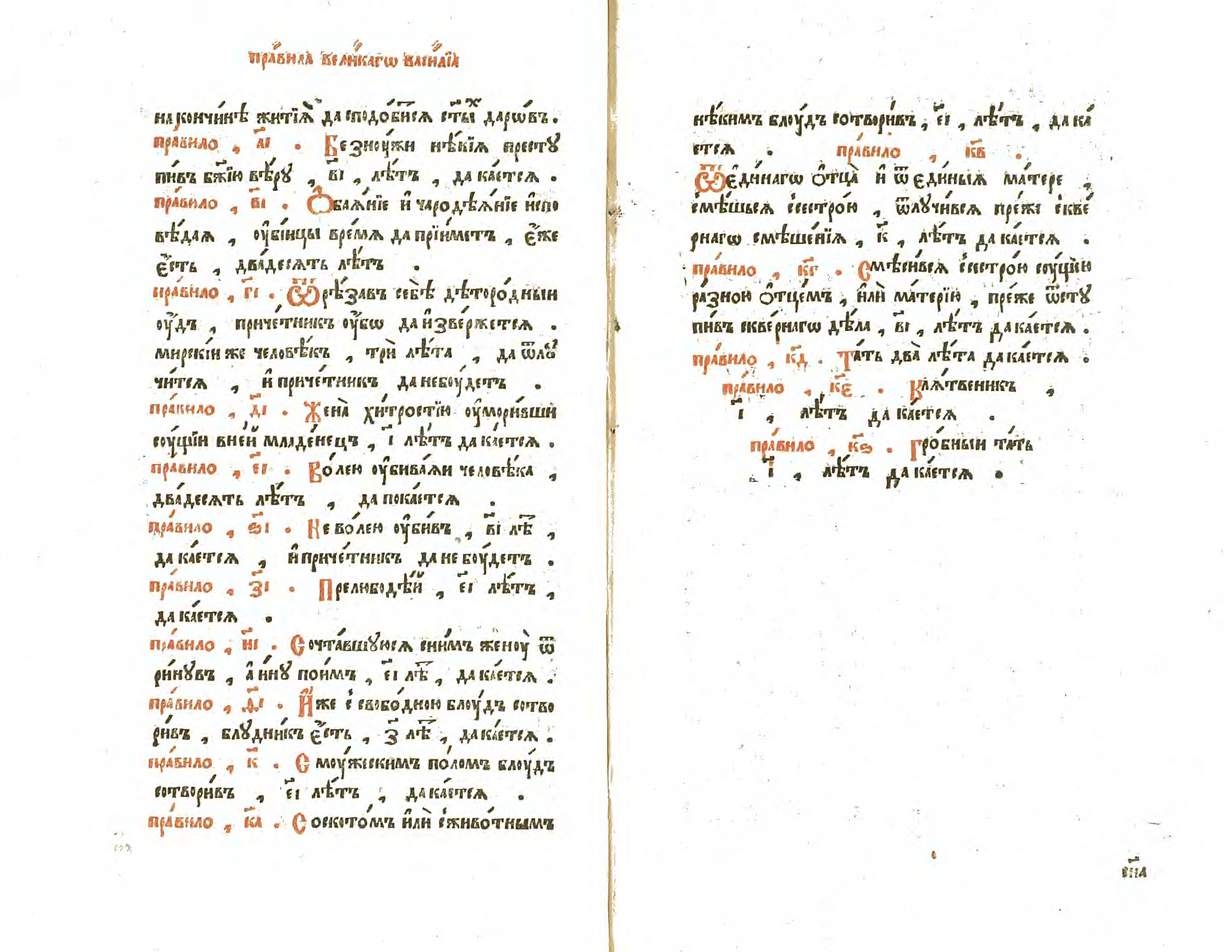 пра́вила вели́кагѡ васи́лїѧ
на кончи́нѣ житїѧ̀ да сподо́бисѧ ст҃ы́хъ даро́въ .
пра́вило , а҃і . Без ноу́жи нѣ́кїѧ престꙋ
пи́въ бж҃їю вѣ́рꙋ , в҃і , лѣ́тъ , да ка́етсѧ .
пра́вило , в҃і . Ѻбаѧ́нїе и҆ чародѣѧ́нїе и҆спо
вѣ́даѧ , оу҆бі́йцы вре́мѧ да прїи́метъ , є҆́же
є҆́сть , два́десѧть лѣ́тъ .
пра́вило , г҃і . Ѿрѣ́завъ себѣ̀ дѣторо́дныи
оу҆́дъ , приче́тникъ оу҆́бо да и҆зве́ржетсѧ .
мирскі́и же человѣ́къ , трѝ лѣ́та , да ѿлꙋ
чи́тсѧ , и҆ приче́тникъ да не боу́детъ .
пра́вило , д҃і . Жена̀ хи́тростїю оу҆мори́вши
соу́щїи в не́й младе́нецъ , і҃ лѣ́тъ да ка́етсѧ .
пра́вило , є҃і . Во́лею оу҆бива́ѧи человѣ́ка ,
два́десѧть лѣ́тъ , да пока́етсѧ .
пра́вило , ѕ҃і . Не во́лею оу҆би́въ , в҃і лѣ҃т ,
да ка́етсѧ , и҆ приче́тникъ да не боу́детъ .
пра́вило , з҃і . Прелюбодѣ́й , є҃і лѣ́тъ ,
да ка́етсѧ .
пра́вило , и҃і . Сочта́вшꙋюсѧ с ни́мъ женоу̀ ѿ
ри́нꙋвъ , а҆ и҆́нꙋ пои́мъ , є҃і лѣ҃т , да ка́етсѧ .
пра́вило , ѳ҃і . И҆́же с свобо́дною блоу́дъ сотво
ри́въ , блꙋдни́къ є҆́сть , з҃ лѣ҃т , да ка́етсѧ .
пра́вило , к҃ . С моу́жескимъ по́ломъ блоу́дъ
сотвори́въ , є҃і лѣ́тъ , да ка́етсѧ .
пра́вило , к҃а . Со ското́мъ и҆лѝ с живо́тнымъ
нѣ́кимъ блоу́дъ сотвори́въ , є҃і , лѣ́тъ , да ка́
етсѧ . пра́вило , к҃в .
Ѿ є҆ди́нагѡ ѻ҆тца̀ и҆ ѿ є҆ди́ныѧ ма́тере ,
смѣ́шьсѧ с сестро́ю , ѿлꙋчи́всѧ пре́же скве́
рнагѡ смѣше́нїѧ , к҃ , лѣ́тъ да ка́етсѧ .
пра́вило , к҃г . Смѣси́всѧ с сестро́ю соу́щїю
ра́зною ѻ҆тце́мъ , и҆лѝ ма́терїю , пре́же ѿстꙋ
пи́въ скве́рнагѡ дѣ́ла , в҃і , лѣ́тъ да ка́етсѧ .
пра́вило , к҃д . Та́ть два̀ лѣ́та да ка́етсѧ .
пра́вило , к҃є . Клѧ́твеникъ ,
і҃ , лѣ́тъ да ка́етсѧ .
пра́вило , к҃ѕ . Гро́бныи та́ть
і҃ , лѣ́тъ да ка́етсѧ .